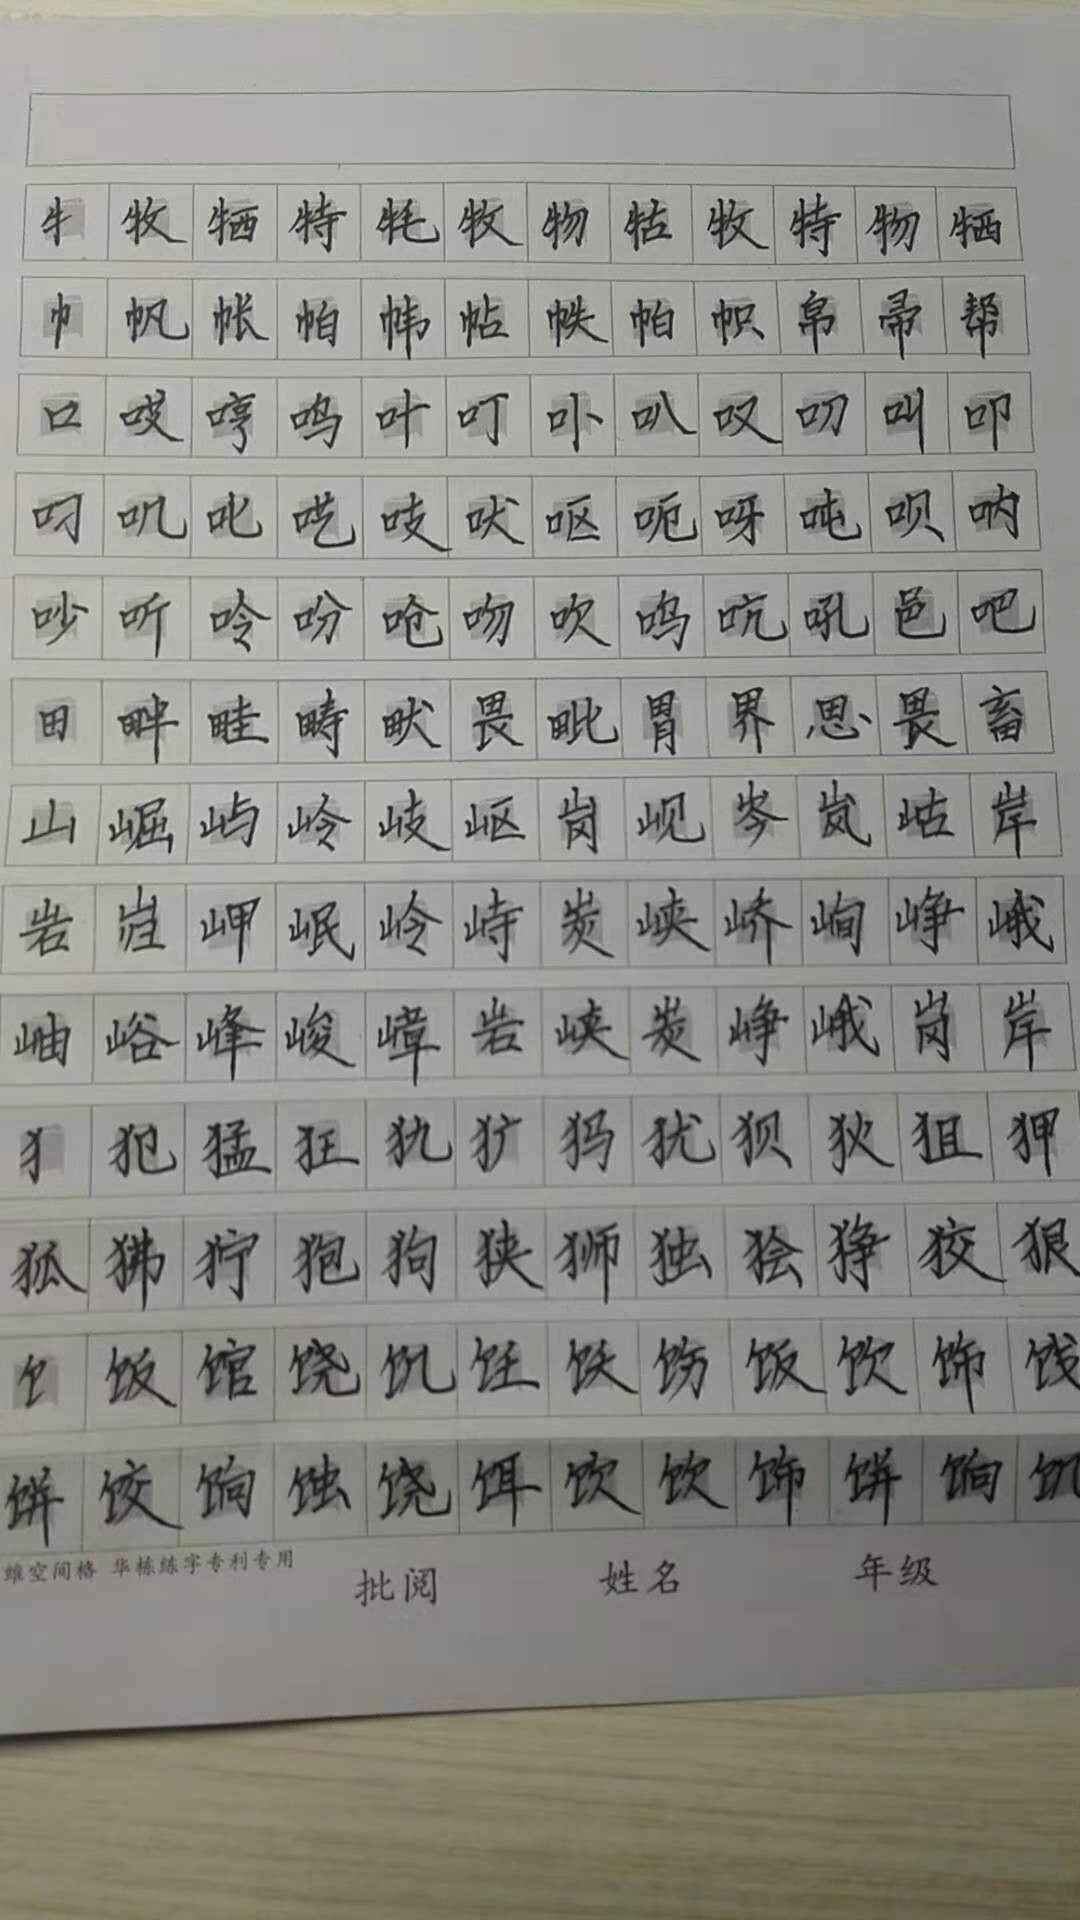 牜 牧 牺 特 牦 牧 物 牯 牧 特 物 牺
巾 帆 帐 帕 帏 帖 帙 帕 帜 帛 帚 帮
口 哎 哼 鸣 叶 叮 卟 叭 叹 叨 叫 叩
叼 叽 叱 呓 吱 吠 呕 呃 呀 吨 呗 呐
吵 听 呤 吩 呛 吻 吹 呜 吭 吼 邑 吧
田 畔 畦 畴 畎 畏 毗 胃 界 思 畏 畜
山 崛 屿 岭 岐 岖 岗 岘 岑 岚 岵 岸
岩 岿 岬 岷 岭 峙 炭 峡 峤 峋 峥 峨
岫 峪 峰 峻 嶂 岩 峡 炭 峥 峨 岗 岸
犭 犯 猛 狂 犰 犷 犸 犹 狈 狄 狙 狎
狐 狒 狞 狍 狗 狭 狮 独 狯 狰 狡 狠
饣 饭 馆 饶 饥 饪 饫 饬 饭 饮 饰 饯
饼 饺 饷 蚀 饶 饵 饮 饮 饰 饼 饷 饥
维空间格 华栋练字专利专用 批阅 姓名 年级